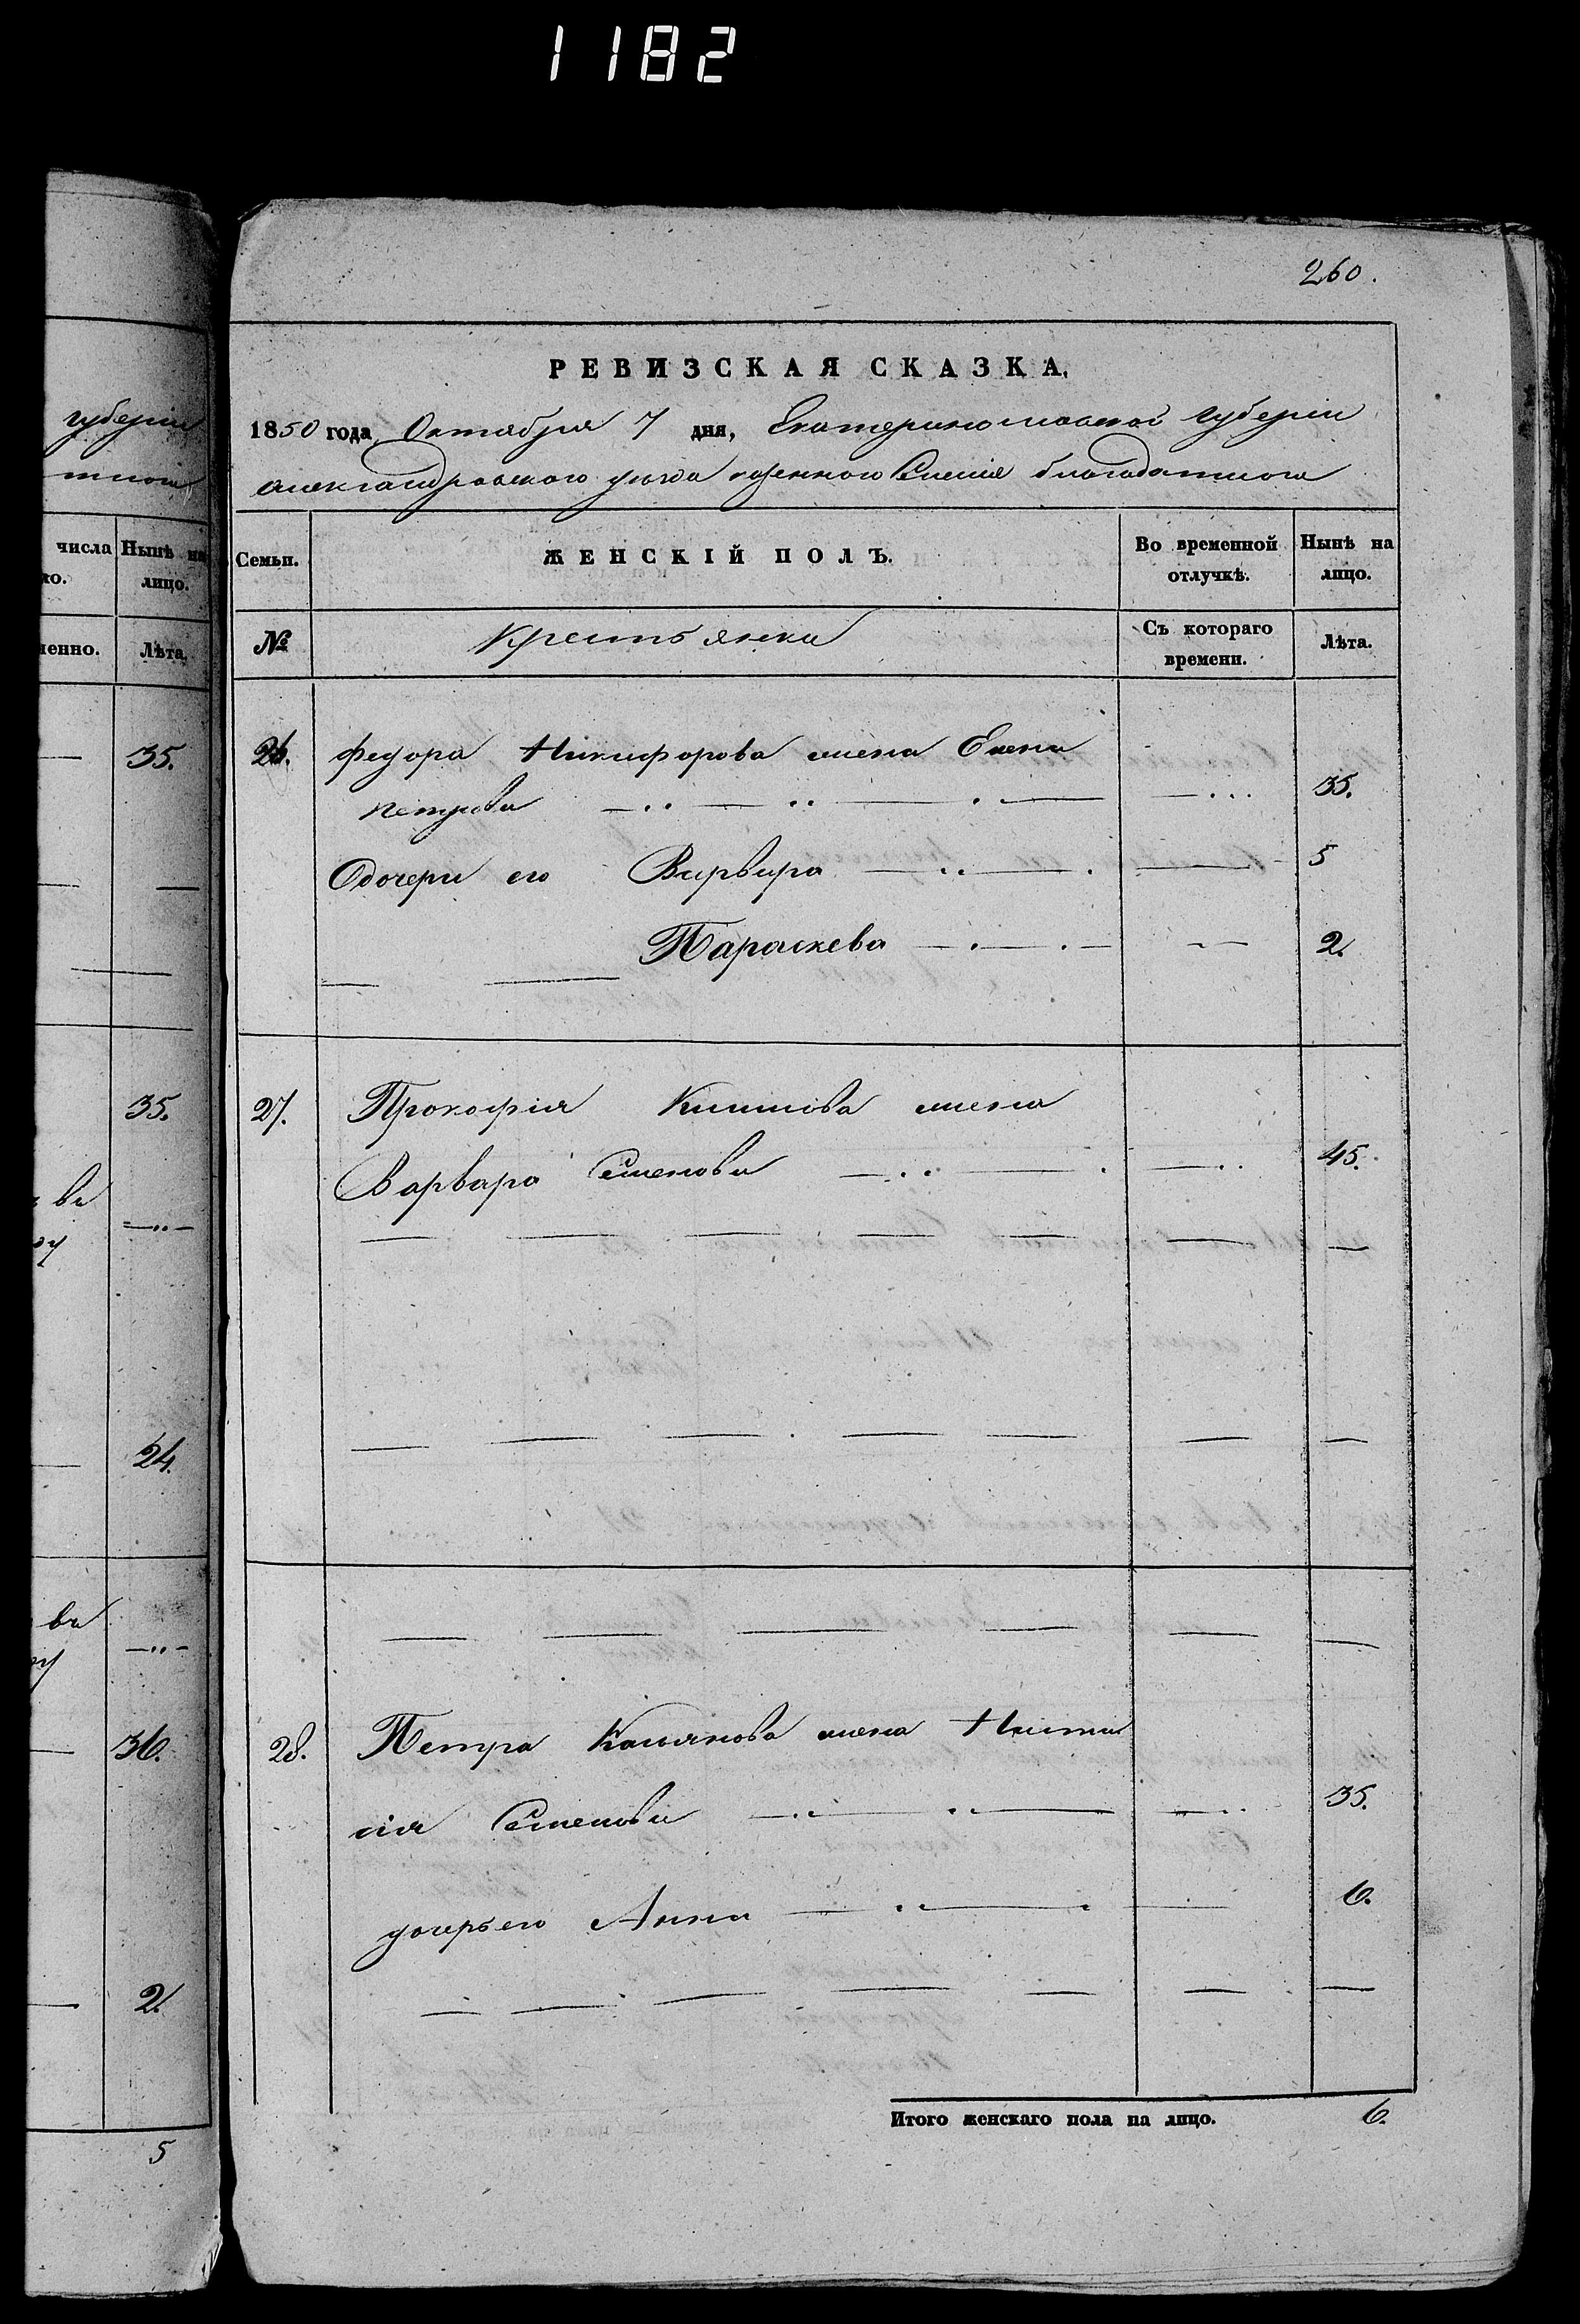 1182
губернiи
тного
числа
Нынѣ на
ло.
лицо.
менно.
Лѣта.
35.
35.
въ
24.
въ
36.
2.
5
260.
РЕВИЗСКАЯ СКАЗКА.
1850 года Октября 7 дня, Екатеринославской губернiи
Александровского уезда казенного Селенiя благодатного
Семьи.
ЖЕНСКIЙ ПОЛЪ.
Во временной отлучкѣ.
Нынѣ на лицо.
№
Крестьянки
Съ котораго времени.
Лѣта.
26. Федора Никифорова жена Елена
петрова 35.
дочери его Варвара 5
Параскева 2.
27. Прокофiя жена
Варвара Семенова 45.
28. Петра Касьянова жена Наста
сiя Семенова 35.
дочерь его Анна 6.
Итого женскаго пола на лицо. 6.